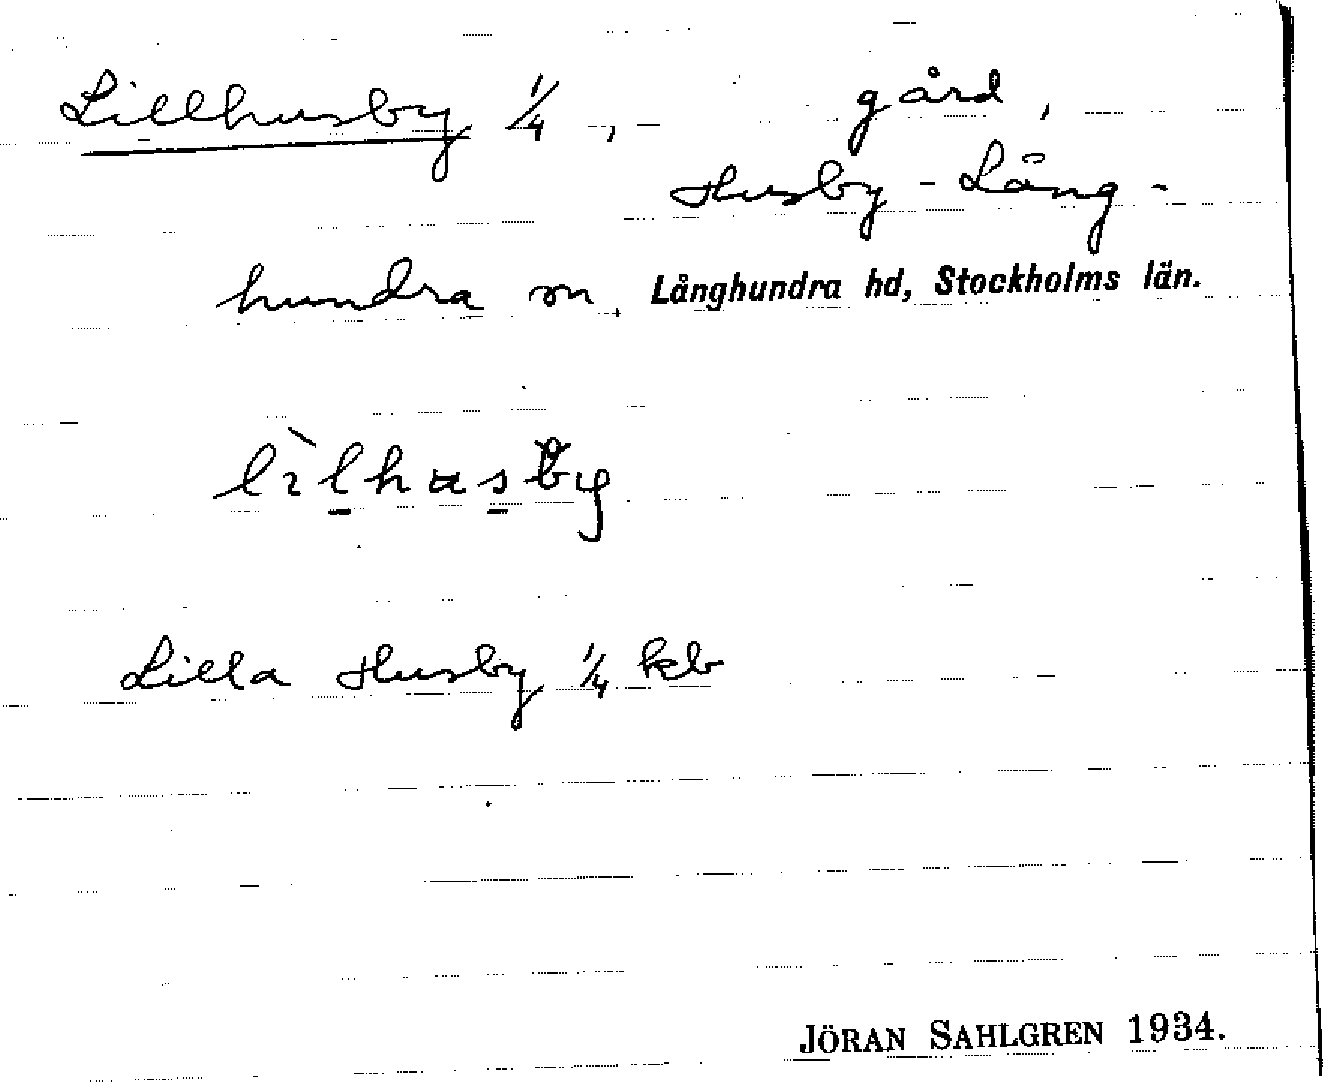 Lillhusby 1/4, gård,
Husby-Lång-
hundra sn, Långhundra hd, Stockholms län.
lìlhusby
Lilla Husby 1/4 kb
JÖRAN SAHLGREN 1934.